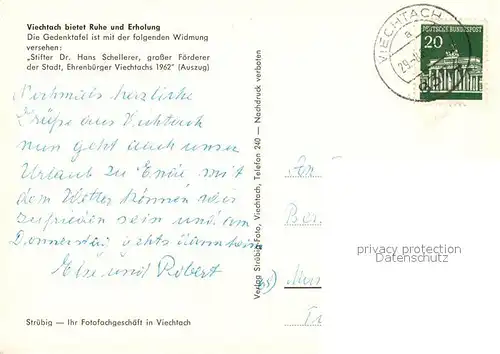 Viechtach bietet Ruhe und Erholung
Die Gedenktafel ist mit der folgenden Widmung
versehen:
„Stifter Dr. Hans Schellerer, großer Förderer
der Stadt, Ehrenbürger Viechtachs 1962" (Auszug)
VIECHTACH
a
29.-
DEUTSCHE BUNDESPOST
20
Nochmals herzliche
Grüße aus Viechtach
nun geht auch unser
Urlaub zu Ende mit
dem Wetter können wir
zufrieden sein und am
Donnerstag gehts
Else und Robert
Verlag Strübig-Foto, Viechtach, Telefon 240 — Nachdruck verboten
An
privacy protection
Datenschutz
Strübig — Ihr Fotofachgeschäft in Viechtach